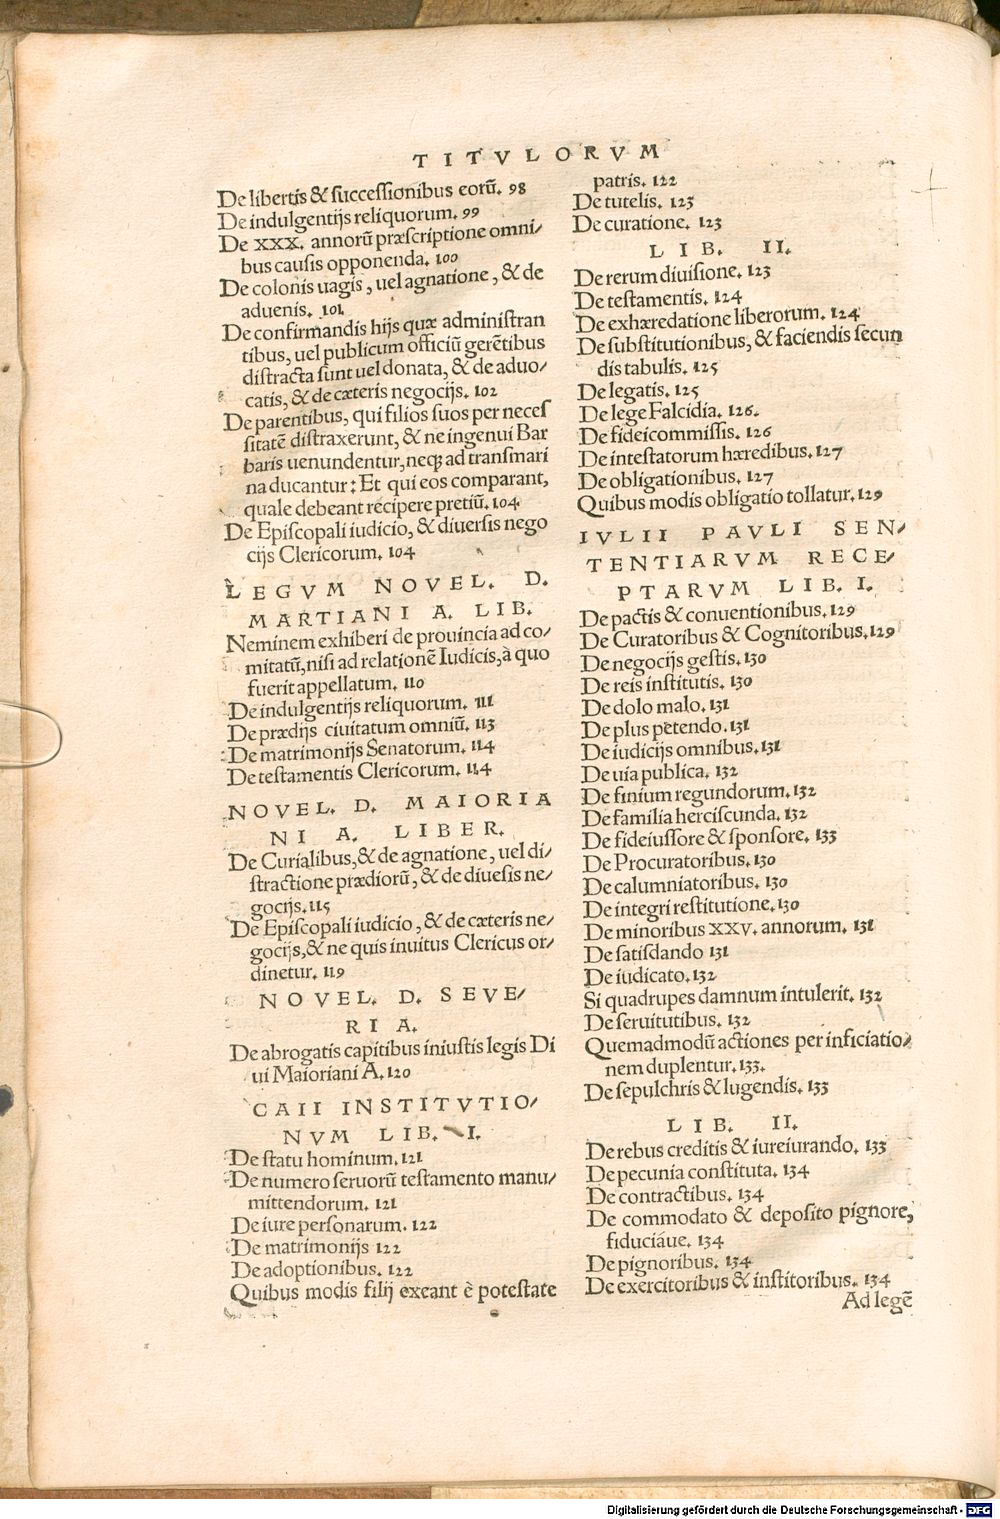 TITVLORVM
De libertis & successionibus eorū. 98
De indulgentijs reliquorum. 99
De XXX. annorū præscriptione omni/
bus causis opponenda. 100
De colonis uagis, uel agnatione, & de
aduenis. 101
De confirmandis hijs quæ administran
tibus, uel publicum officiū gerētibus
distracta sunt uel donata, & de aduo/
catis, & de cæteris negocijs. 102
De parentibus, qui filios suos per neces
sitatē distraxerunt, & ne ingenui Bar
baris uenundentur, neq; ad transmari
na ducantur: Et qui eos comparant,
quale debeant recipere pretiū. 104
De Episcopali iudicio, & diuersis nego
cijs Clericorum. 104
LEGVM NOVEL. D.
MARTIANI A. LIB.
Neminem exhiberi de prouincia ad co/
mitatū, nisi ad relationē Iudicis, à quo
fuerit appellatum. 110
De indulgentijs reliquorum. 111
De prædijs ciuitatum omniū. 113
De matrimonijs Senatorum. 114
De testamentis Clericorum. 114
NOVEL. D. MAIORIA
NI A. LIBER.
De Curialibus, & de agnatione, uel di/
stractione prædiorū, & de diuesis ne/
gocijs. 115
De Episcopali iudicio, & de cæteris ne/
gocijs, & ne quis inuitus Clericus or/
dinetur. 119
NOVEL. D. SEVE/
RI A.
De abrogatis capitibus iniustis legis Di
ui Maioriani A. 120
CAII INSTITVTIO/
NVM LIB. I.
De statu hominum. 121
De numero seruorū testamento manu/
mittendorum. 121
De iure personarum. 122
De matrimonijs 122
De adoptionibus. 122
Quibus modis filij exeant è potestate
patris. 122
De tutelis. 123
De curatione. 123
LIB. II.
De rerum diuisione. 123
De testamentis. 124
De exhæredatione liberorum. 124
De substitutionibus, & faciendis secun
dis tabulis. 125
De legatis. 125
De lege Falcidia. 126.
De fideicommissis. 126
De intestatorum hæredibus. 127
De obligationibus. 127
Quibus modis obligatio tollatur. 129
IVLII PAVLI SEN/
TENTIARVM RECE/
PTARVM LIB. I.
De pactis & conuentionibus. 129
De Curatoribus & Cognitoribus. 129
De negocijs gestis. 130
De reis institutis. 130
De dolo malo. 131
De plus petendo. 131
De iudicijs omnibus. 131
De uia publica. 132
De finium regundorum. 132
De familia herciscunda. 132
De fideiussore & sponsore. 133
De Procuratoribus. 130
De calumniatoribus. 130
De integri restitutione. 130
De minoribus XXV. annorum. 131
De satisdando 131
De iudicato. 132
Si quadrupes damnum intulerit. 132
De seruitutibus. 132
Quemadmodū actiones per inficiatio/
nem duplentur. 133.
De sepulchris & lugendis. 133
LIB. II.
De rebus creditis & iureiurando. 133
De pecunia constituta. 134
De contractibus. 134
De commodato & deposito pignore,
fiduciáue. 134
De pignoribus. 134
De exercitoribus & institoribus. 134
Ad legē
Digitalisierung gefördert durch die Deutsche Forschungsgemeinschaft - DFG